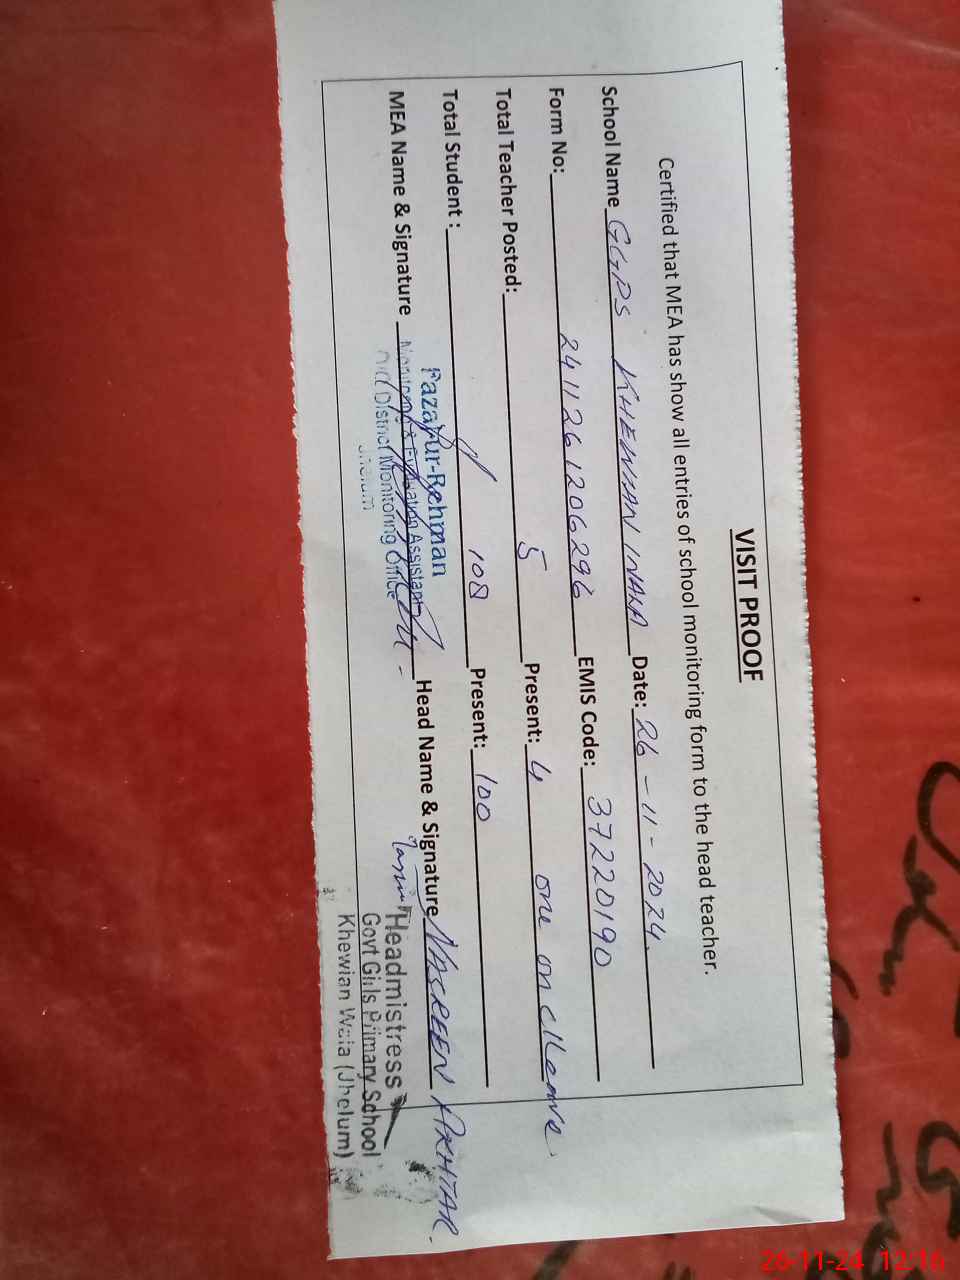 VISIT PROOF
Certified that MEA has show all entries of school monitoring form to the head teacher.
School Name GGPS KHEWIAN WALA Date: 26-11-2024
Form No: 2411261206296 EMIS Code: 37220190
Total Teacher Posted: 5 Present: 4 one on cleave
Total Student : 108 Present: 100
MEA Name & Signature Head Name & Signature NASREEN AKHTAR.
Fazal-ur-Rehman
Monitoring & Evaluation Assistant
District Monitoring Office
Jhelum
Headmistress
Govt Girls Primary School
Khewian Wala (Jhelum)
26-11-24 12:16